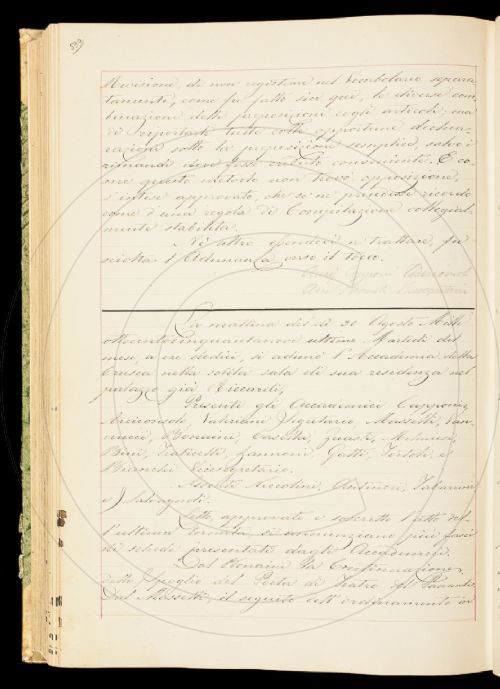 533
Revisione, di non registrare nel Vocabolario separa-
tamente, come fu fatto sin qui, le diverse com-
binazioni delle preposizioni cogli articoli; ma
di riportarle tutte colle opportune dichia-
razioni sotto la preposizione semplice, salvo i
rimandi dove fosse creduto conveniente. E co-
me questo metodo non trovò opposizione,
s'intese approvato, che se ne prendesse ricordo
come d'una regola di Compilazione collegial-
mente stabilita.
Né altro essendovi a trattare, fu
sciolta l'Adunanza verso il tocco.
La mattina del dì 30 Agosto Mille
ottocentocinquantanove ultimo Martedì del
mese, a ore dodici, si adunò l'Accademia della
Crusca nella solita sala di sua residenza nel
palazzo già Riccardi.
Presenti gli Accademici Capponi
Arciconsolo, Valeriani Segretario, Masselli, Van-
nucci, Bonaini, Casella, Guasti, Milanesi,
Bini, Fraticelli, Zannoni, Gatti, Tortoli e
Bianchi Vicesegretario.
Assenti Niccolini,
e Salvagnoli.
Letto approvato e soscritto l'atto del-
l'ultima tornata, si annunziano più fasci
di schede presentati dagli Accademici.
Dal Bonaini la Continuazione
dello spoglio del Pietà di
Dal Masselli, il seguito dell'ordinamento in